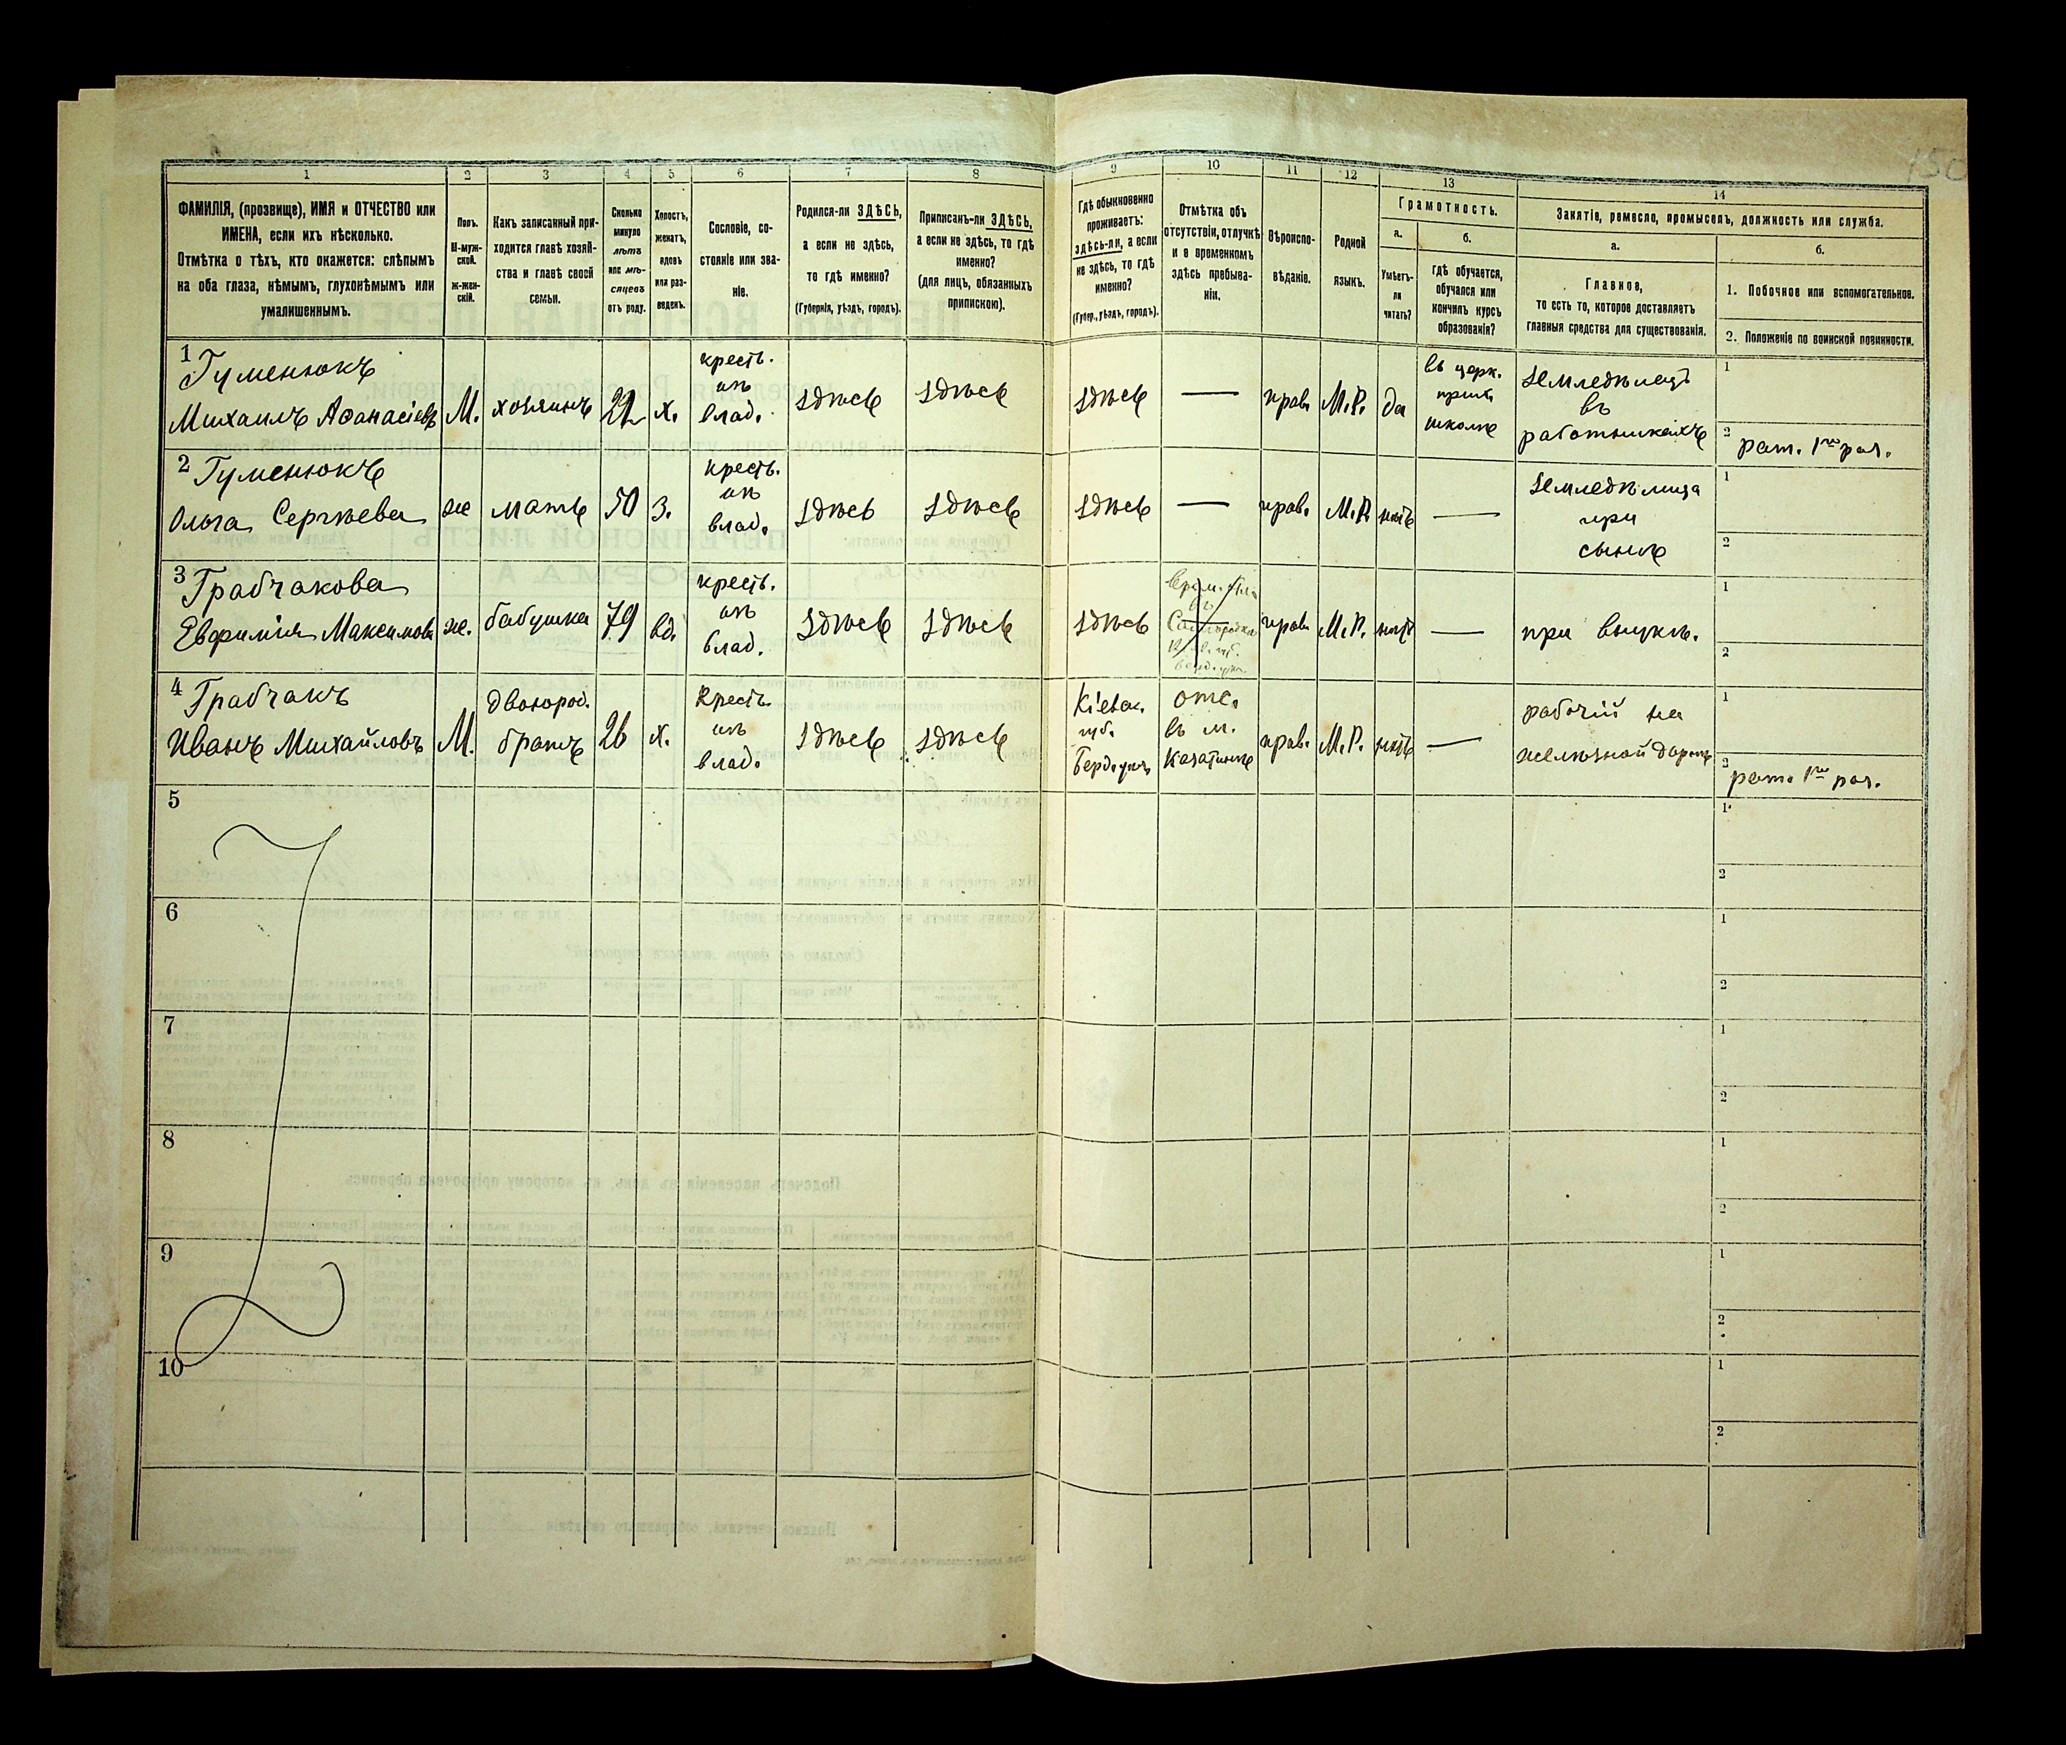 150
1 2 3 4 5 6 7 8 9 10 11 12 13 14
ФАМИЛІЯ, (прозвище), ИМЯ и ОТЧЕСТВО или
ИМЕНА, если ихъ нѣсколько.
Отмѣтка о тѣхъ, кто окажется: слѣпымъ
на оба глаза, нѣмымъ, глухонѣмымъ или
умалишеннымъ.
Полъ.
М-муж-
ской.
Ж-жен-
скій.
Какъ записанный при-
ходится главѣ хозяй-
ства и главѣ своей
семьи.
Сколько
минуло
лѣтъ
или мѣ-
сяцевъ
отъ роду.
Холостъ,
женатъ,
вдовъ
или раз-
веденъ.
Сословіе, со-
стояніе или зва-
ніе.
Родился-ли ЗДѢСЬ,
а если не здѣсь,
то гдѣ именно?
(Губернія, уѣздъ, городъ).
Приписанъ-ли ЗДѢСЬ,
а если не здѣсь, то гдѣ
именно?
(для лицъ, обязанныхъ
припискою).
Гдѣ обыкновенно
проживаетъ:
здѣсь-ли, а если
не здѣсь, то гдѣ
именно?
(Губер., уѣздъ, городъ).
Отмѣтка объ
отсутствіи, отлучкѣ
и о временномъ
здѣсь пребыва-
ніи.
Вѣроиспо-
вѣданіе.
Родной
языкъ.
Грамотность.
а.
Умѣетъ-
ли
читать?
б.
Гдѣ обучается,
обучался или
кончилъ курсъ
образованія?
Занятіе, ремесло, промыселъ, должность или служба.
а.
Главное,
то есть то, которое доставляетъ
главныя средства для существованія.
б.
1. Побочное или вспомогательное.
2. Положеніе по воинской повинности.
1 Гуменюкъ
Михаилъ Афанасіевъ
М.
хозяинъ
22
х.
кресть.
изъ
влад.
здѣсь
здѣсь
здѣсь
—
прав.
М.Р.
да
въ церк.
прих.
школѣ
Земледѣлецъ
въ
работникахъ
1
2 рат. 1го раз.
2 Гуменюкъ
Ольга Сергѣева
же
мать
50
З.
кресть.
изъ
влад.
здѣсь
здѣсь
здѣсь
—
прав.
М.Р.
нѣтъ
—
Земледѣлица
при
сынѣ
1
2
3 Грабчакова
Евфимія Максимова
же.
бабушка
79
вд.
кресть.
изъ
влад.
здѣсь
здѣсь
здѣсь
въ
прав.
М.Р.
нѣтъ
—
при внукѣ.
1
2
4 Грабчакъ
Иванъ Михайловъ
М.
двоюрод.
братъ
26
х.
Кресть.
изъ
влад.
здѣсь
здѣсь
Кіевск.
губ.
Берд. уѣз.
отс.
въ м.
Казатинѣ
прав.
М.Р.
нѣтъ
—
рабочій на
желѣзной дорогѣ
1
2 рат. 1го раз.
5
1
2
6
1
2
7
1
2
8
1
2
9
1
2
10
1
2